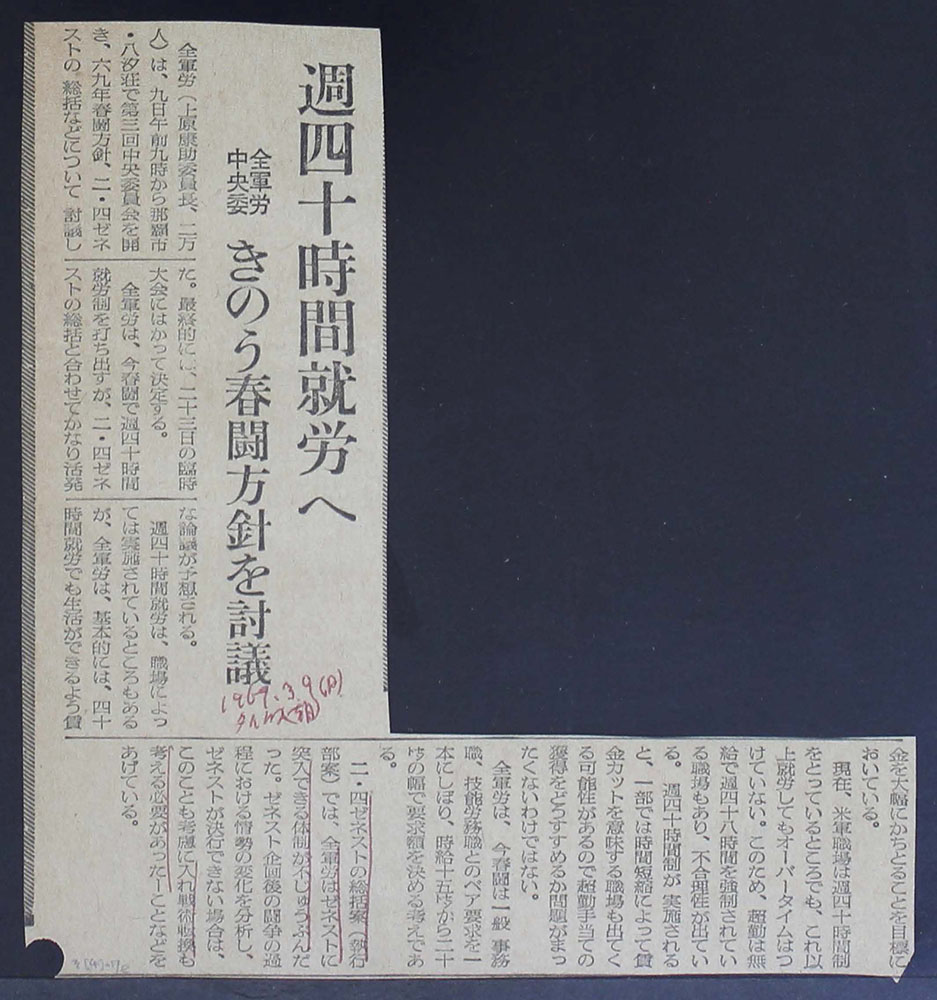 週四十時間就労へ
全軍労
中央委
きのう春闘方針を討議
全軍労（上原康助委員長、二万
人）は、九日午前九時から那覇市
・八汐荘で第三回中央委員会を開
き、六九年春闘方針、二・四ゼネ
ストの総括などについて討議し
た。最終的には、二十三日の臨時
大会にはかって決定する。
全軍労は、今春闘で週四十時間
就労制を打ち出すが、二・四ゼネ
ストの総括と合わせてかなり活発
な論議が予想される。
週四十時間就労は、職場によっ
ては実施されているところもある
が、全軍労は、基本的には、四十
時間就労でも生活ができるよう賃
金を大幅にかちとることを目標に
おいている。
現在、米軍職場は週四十時間制
をとっているところでも、これ以
上就労してもオーバータイムはつ
けていない。このため、超勤は無
給で週四十八時間を強制されてい
る職場もあり、不合理性が出てい
る。週四十時間制が実施される
と、一部では時間短縮によって賃
金カットを意味する職場も出てく
る可能性があるので超勤手当ての
獲得をどうすすめるか問題がまっ
たくないわけではない。
全軍労は、今春闘は一般事務
職、技能労務職とのベア要求を一
本にしぼり、時給十五㌣から二十
㌣の幅で要求額を決める考えであ
る。
二・四ゼネストの総括案（執行
部案）では、全軍労はゼネストに
突入できる体制が不じゅうぶんだ
った。ゼネスト企画後の闘争の過
程における情勢の変化を分析し、
ゼネストが決行できない場合は、
このことも考慮に入れ戦術転換も
考える必要があったーことなどを
あげている。
1969.3.9(日)
タイムス朝